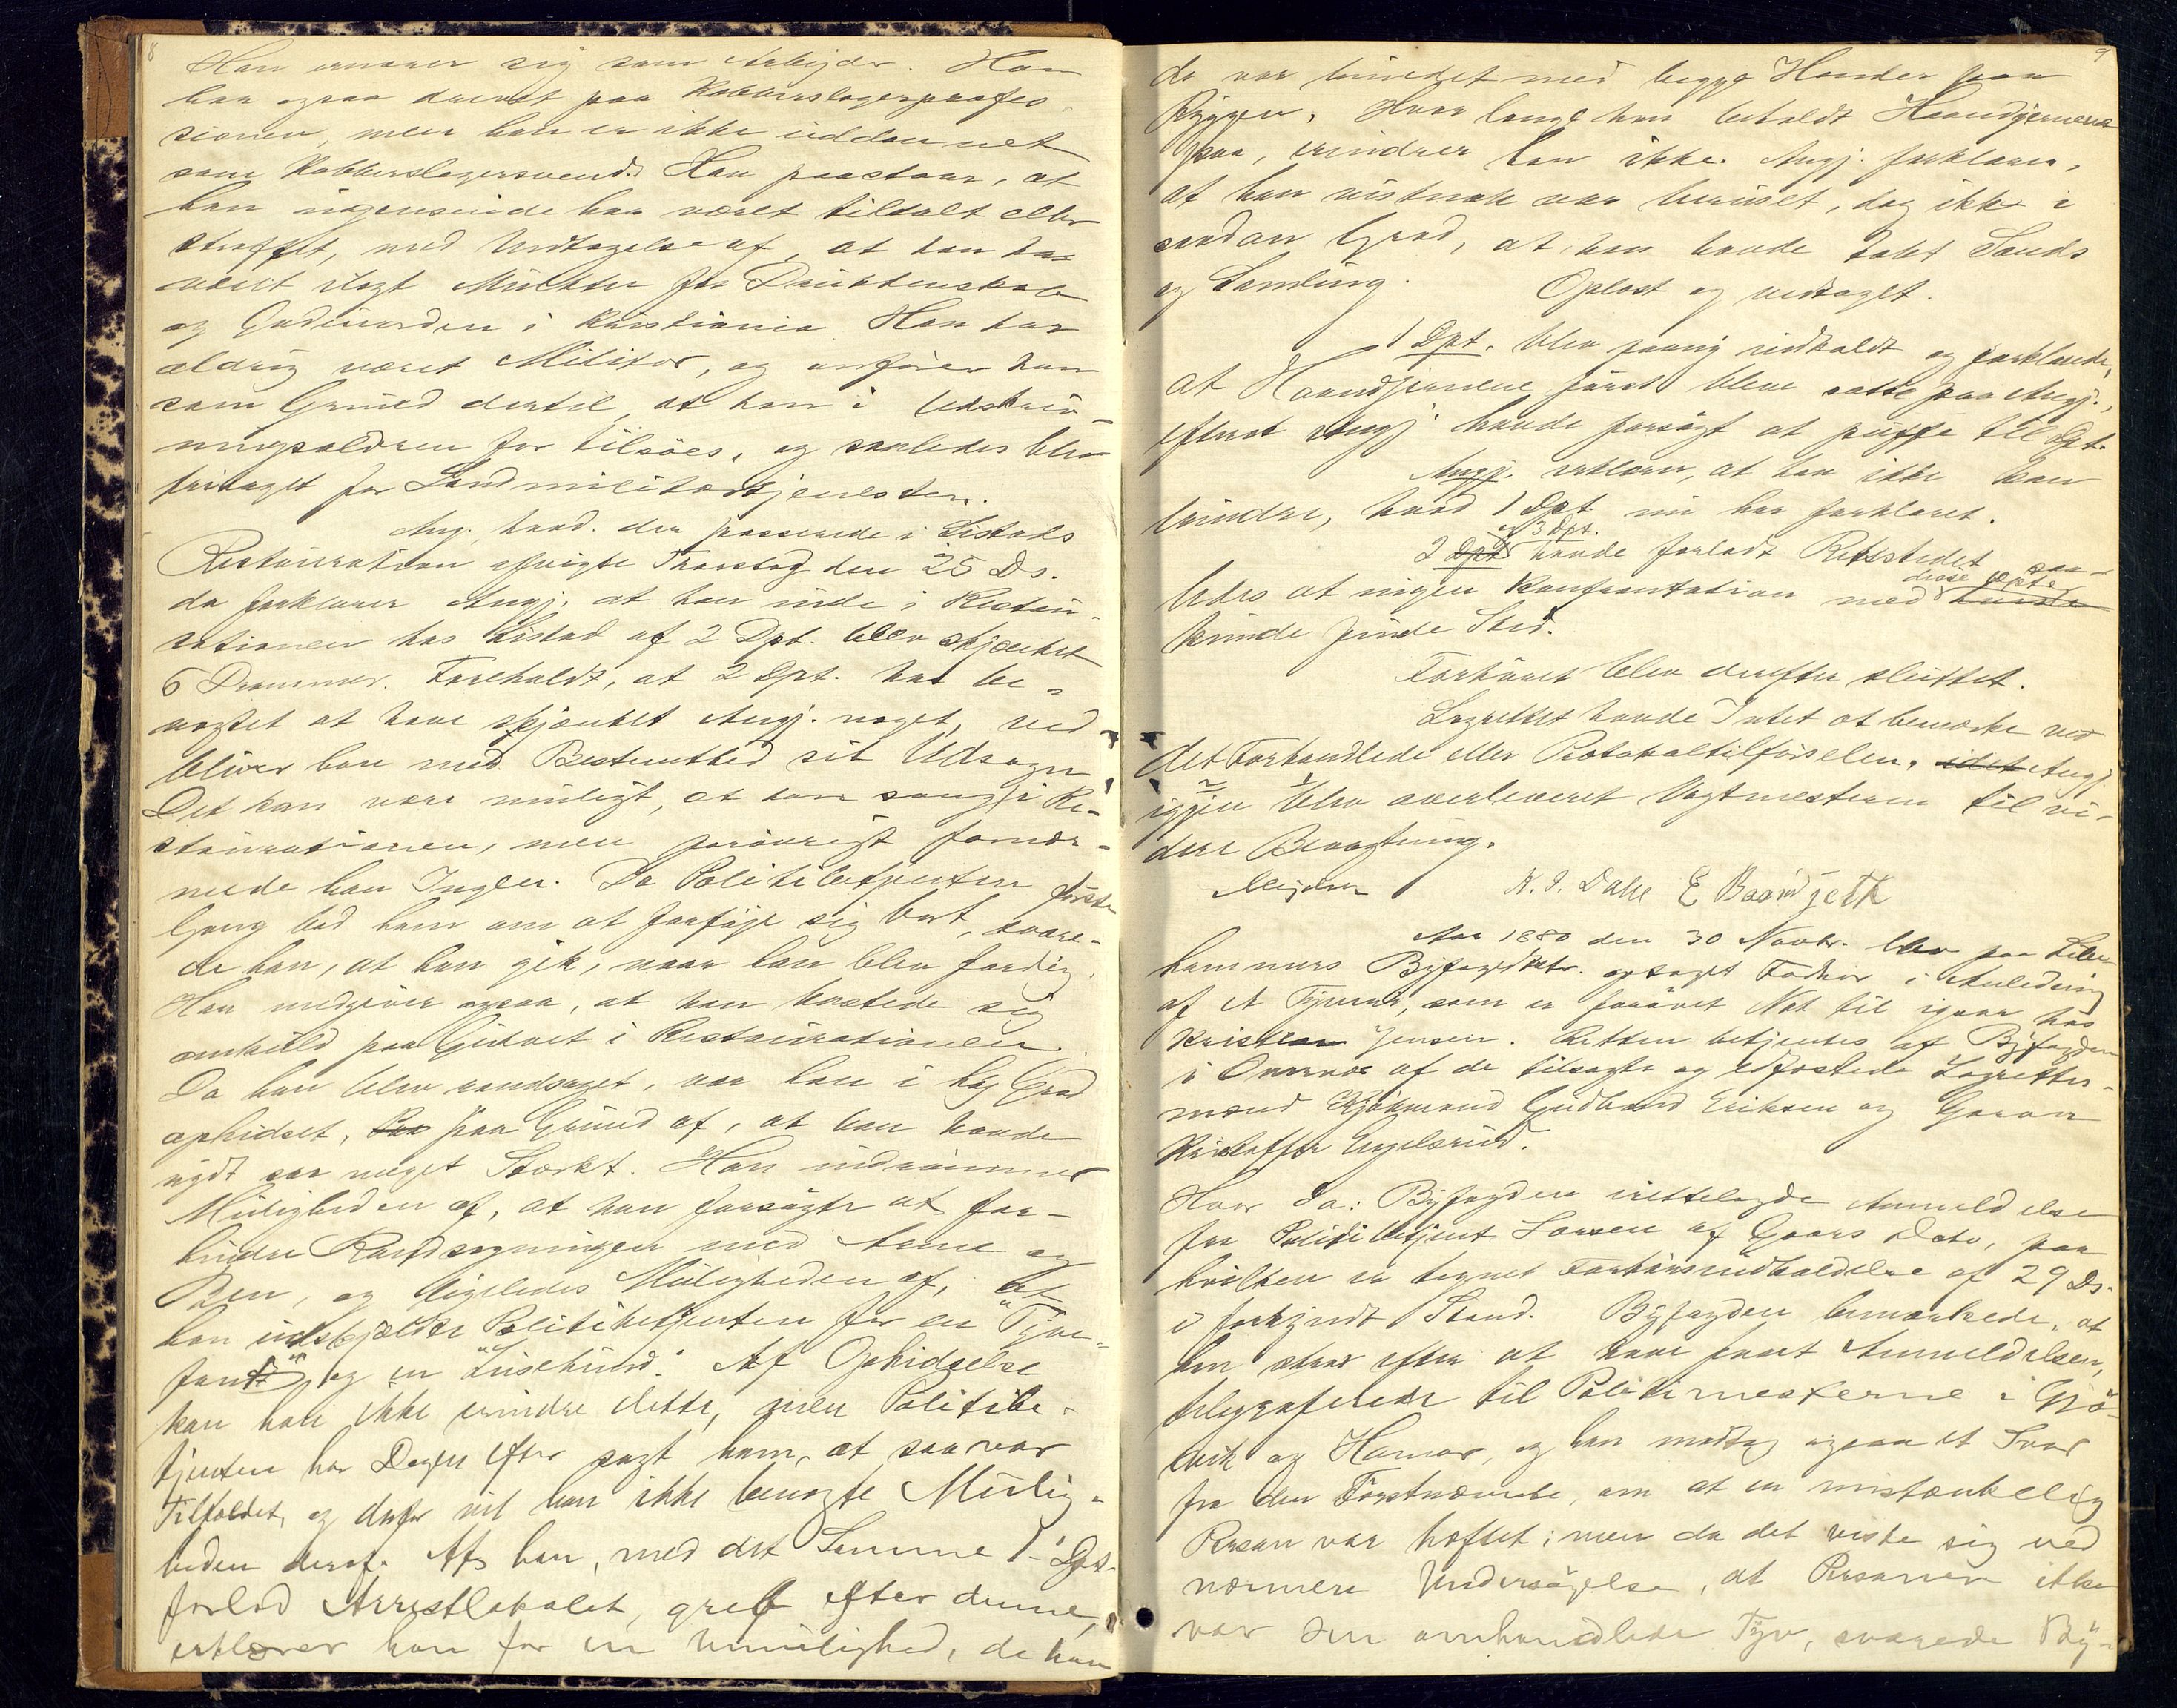 8
Han ernærer sig som Arbejder. Han
har ogsaa drevet paa Kobberslagerprofes-
sionen, men han er ikke uddannet
som Kobberslagersvend. Han paastaar, at
han ingensinde har været tiltalt eller
straffet, med Undtagelse af, at han har
været ilagt Mulkter for Drukkenskab
og Gadeuorden i Kristiania Han har
aldrig været Militær, og anfører han
som Grund dertil, at han i Udskriv-
ningsalderen for tilsøes, og saaledes blev
fritaget for Landmilitærtjenesten.
Ang. hvad der passerede i Listads
Restauration afvigte Thorsdag den 25 Ds.
da forklarer Angj. at han inde i Restau-
rationen hos Listad af 2 Dpt. blev skjænket
6 Drammer. Foreholdt, at 2 Dpt. har be-
nægtet at have skjænket Angj. noget, ved
bliver han med Bestemthed sit Udsagn
Det kan være muligt, at han sang i Re-
staurationen, men forøvrigt fornær-
mede han Ingen. Da Politibetjenten første
Gang bad ham om at forføje sig bort, svare-
de han, at han gik, naar han blev færdig.
Han medgiver ogsaa, at han kastede sig
omkuld paa Gulvet i Restaurationen.
Da han blev randsaget, var han i høj Grad
ophidset, paa Grund af, at han havde
nydt saa meget Stærkt. Han indrømmer
Muligheden af, at han forsøgte at for-
hindre Randsagningen med Arme og
Ben, og ligeledes Muligheden af, at
han udskjældte Politibetjenten for en "Tyve-
fant" og en "Lusehund". Af Ophidselse
kan han ikke erindre dette, men Politibe-
tjenten har Dagen efter sagt ham, at saa var
Tilfældet, og derfor vil han ikke benægte Mulig-
heden deraf. At han, med det Samme 1 Dpt.
forlod Arrestlokalet, greb efter denne,
erklærer han for en Umulighed, da han
9
da var bundet med begge Hænder paa
Ryggen. Hvor længe han beholdt Haandjernene
paa, erindrer han ikke. Angj. forklarer,
at han vistnok var beruset, dog ikke i
saadan Grad, at han havde tabt Sands
og Samling. Oplæst og vedtaget.
1 Dpt. blev paany indkaldt og forklarede,
at Haandjernene først bleve satte paa Angj.,
efterat Angj. havde forsøgt at puffe til Dpt.
Angj. erklærer, at han ikke kan
erindre, hvad 1 Dpt nu har forklaret.
og 3 Dpt.
2 Dpt havde forladt Retsstedet saa-
disse Dpte
ledes at ingen Konfrontation med
kunde finde Sted.
Forhøret blev derefter sluttet.
Lagrettet havde Intet at bemærke ved
det Forhandlede eller Protokoltilførselen. idet Angj.
igjen blev overleveret Vagtmesteren til vi-
dere Bevogtning.
N. J. Dahl E Baardseth
Aar 1880 den 30 Novbr. blev paa Lille
hammers Byfogedktr. optaget Forhør i Anledning
af et Tyveri, som er forøvet Nat til igaar hos
Kristian Jensen. Retten betjentes af Byfogden
i Overvær af de tilsagte og edfæstede Lagrettes-
mænd Kjøbmand Gudbrand Eriksen og Garver
Kristoffer Engelsrud.
Hvor da: Byfogden irettelagde Anmeldelse
fra Politibetjent Larsen af Gaars Dato, paa
hvilken er tegnet Forhørsindkaldelse af 29 Ds.
i forkyndt Stand. Byfogden bemærkede, at
han strax efter at have faaet Anmeldelsen,
telegraferede til Politimesterne i Gjø-
vik og Hamar, og han modtog ogsaa et Svar
fra den Førstnævnte, om at en mistænkelig
Person var hæftet; men da det viste sig ved
nærmere Undersøgelse, at Personen ikke
var den omhandlede Tyv, svarede By-